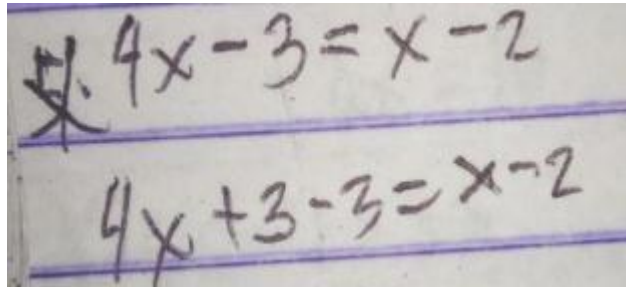 5. 4x - 3 = x - 2
4x + 3 - 3 = x - 2